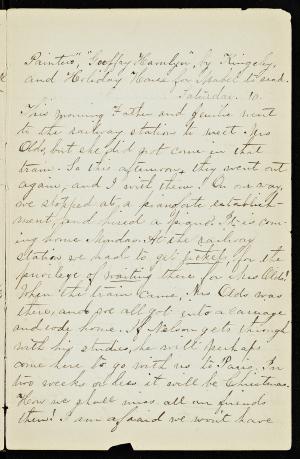 Painters," "Geoffry Hamlyn", by Kingsley,
and Holiday House for Isabel to read.
Saturday. 10.
This morning Father and Julie went
to the railway station to meet Mrs
Olds, but she did not come in that
train. So this afternoon, they went out
again, and I with them. On our way,
we stopped at, a pianoforte establish-
ment, and hired a piano. It is com-
ing home Monday. At the railway
station we had to get tickets for the
privilege of waiting there for Mrs Olds!
When the train came, Mrs Olds was
there, and we all got into a carriage
and rode home. If Nelson gets through
with his studies, he will perhaps
come here to go with us to Paris. In
two weeks or less it will be Christmas.
How we shall miss all our friends
then! I am afraid we wont have